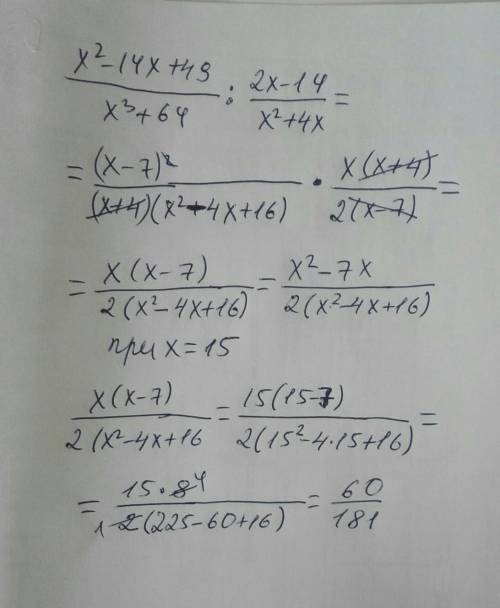 x² - 14x + 49 / x³ + 64 : 2x - 14 / x² + 4x =
= (x - 7)² / (x+4)(x² - 4x + 16) · x(x+4) / 2(x-7) =
= x(x - 7) / 2(x² - 4x + 16) = x² - 7x / 2(x² - 4x + 16)
при x = 15
x(x-7) / 2(x² - 4x + 16 = 15(15-7) / 2(15² - 4·15 + 16) =
= 15·8 4 / 1 2(225 - 60 + 16) = 60 / 181